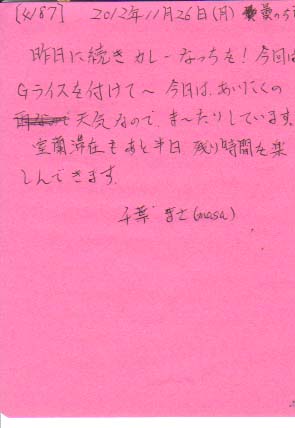 [4187] 2012年11月26日(月)
昨日に続きカレーなっちを!今回は
Gライスを付けて〜今日は、あいにくの
天気なので、まったりしています。
室蘭滞在もあと半日 残り時間を楽
しんできます。
千葉 まさ(masa)